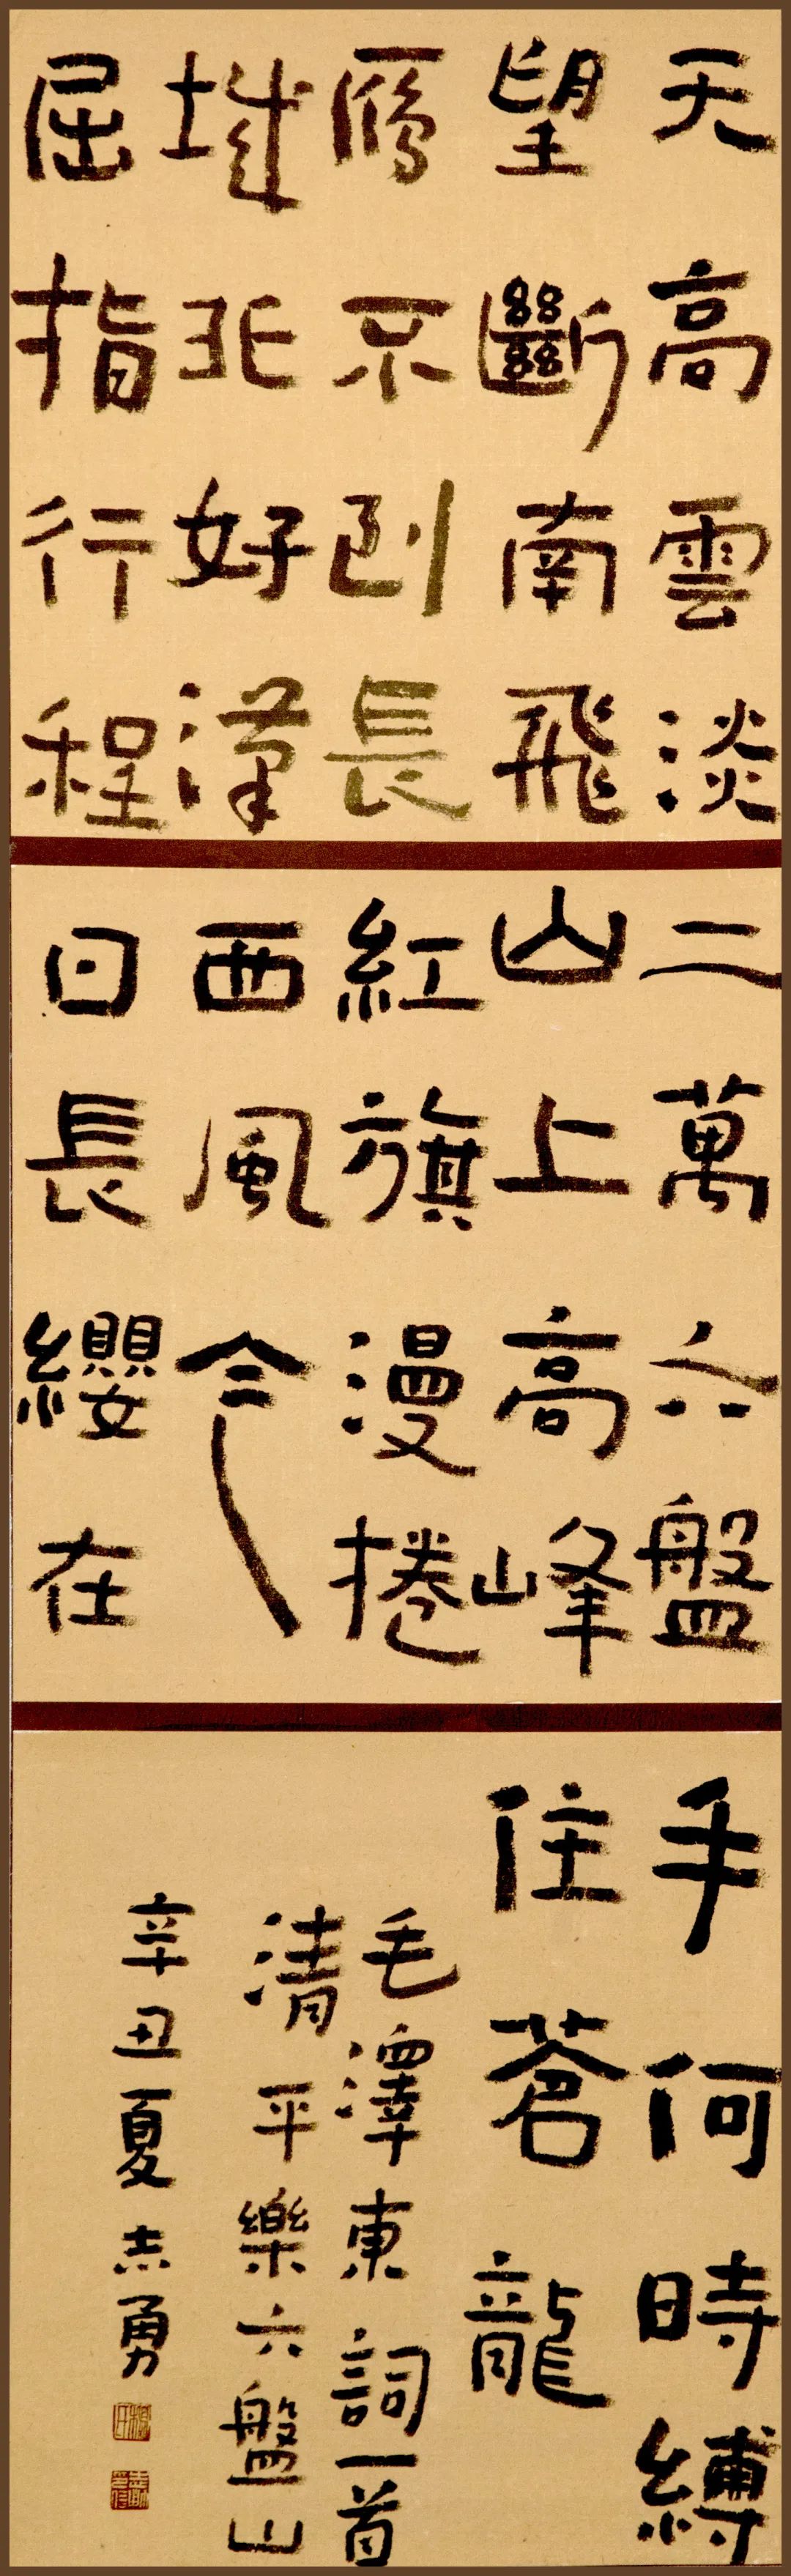 天高雲淡
望斷南飛
鴈不到長
城非好漢
屈指行程
二萬六盤
山上高峰
紅旗漫捲
西風今
日長纓在
手何時縛
住蒼龍
毛澤東詞一首
清平樂六盤山
辛丑夏志勇